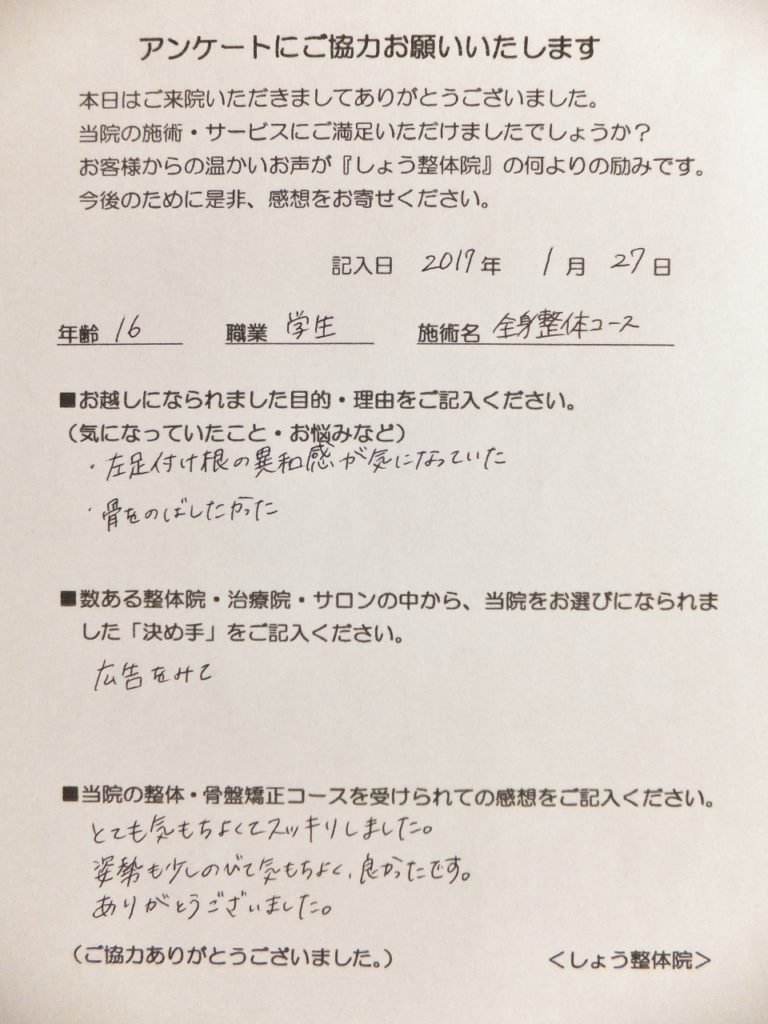 アンケートにご協力お願いいたします
本日はご来院いただきましてありがとうございました。
当院の施術・サービスにご満足いただけましたでしょうか？
お客様からの温かいお声が『しょう整体院』の何よりの励みです。
今後のために是非、感想をお寄せください。
記入日 2017年 1月 27日
年齢 16 職業 学生 施術名 全身整体コース
■お越しになられました目的・理由をご記入ください。
（気になっていたこと・お悩みなど）
・左足付け根の異和感が気になっていた
・骨をのばしたかった
■数ある整体院・治療院・サロンの中から、当院をお選びになられま
した「決め手」をご記入ください。
広告をみて
■当院の整体・骨盤矯正コースを受けられての感想をご記入ください。
とても気もちよくてスッキリしました。
姿勢も少しのびて気もちよく、良かったです。
ありがとうございました。
（ご協力ありがとうございました。） ＜しょう整体院＞